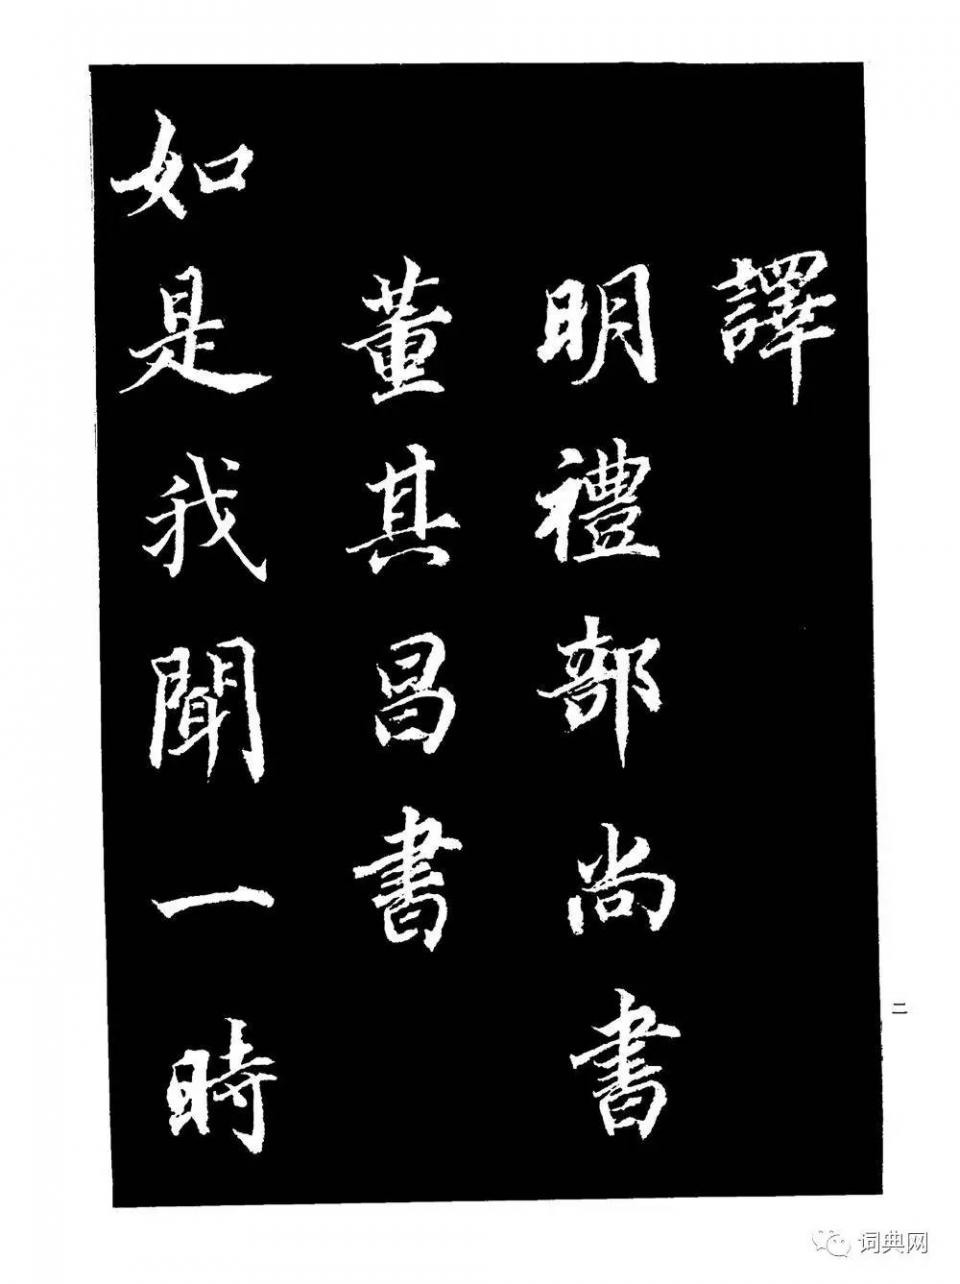 譯
明禮部尚書
董其昌書
如是我聞一時
二
词典网